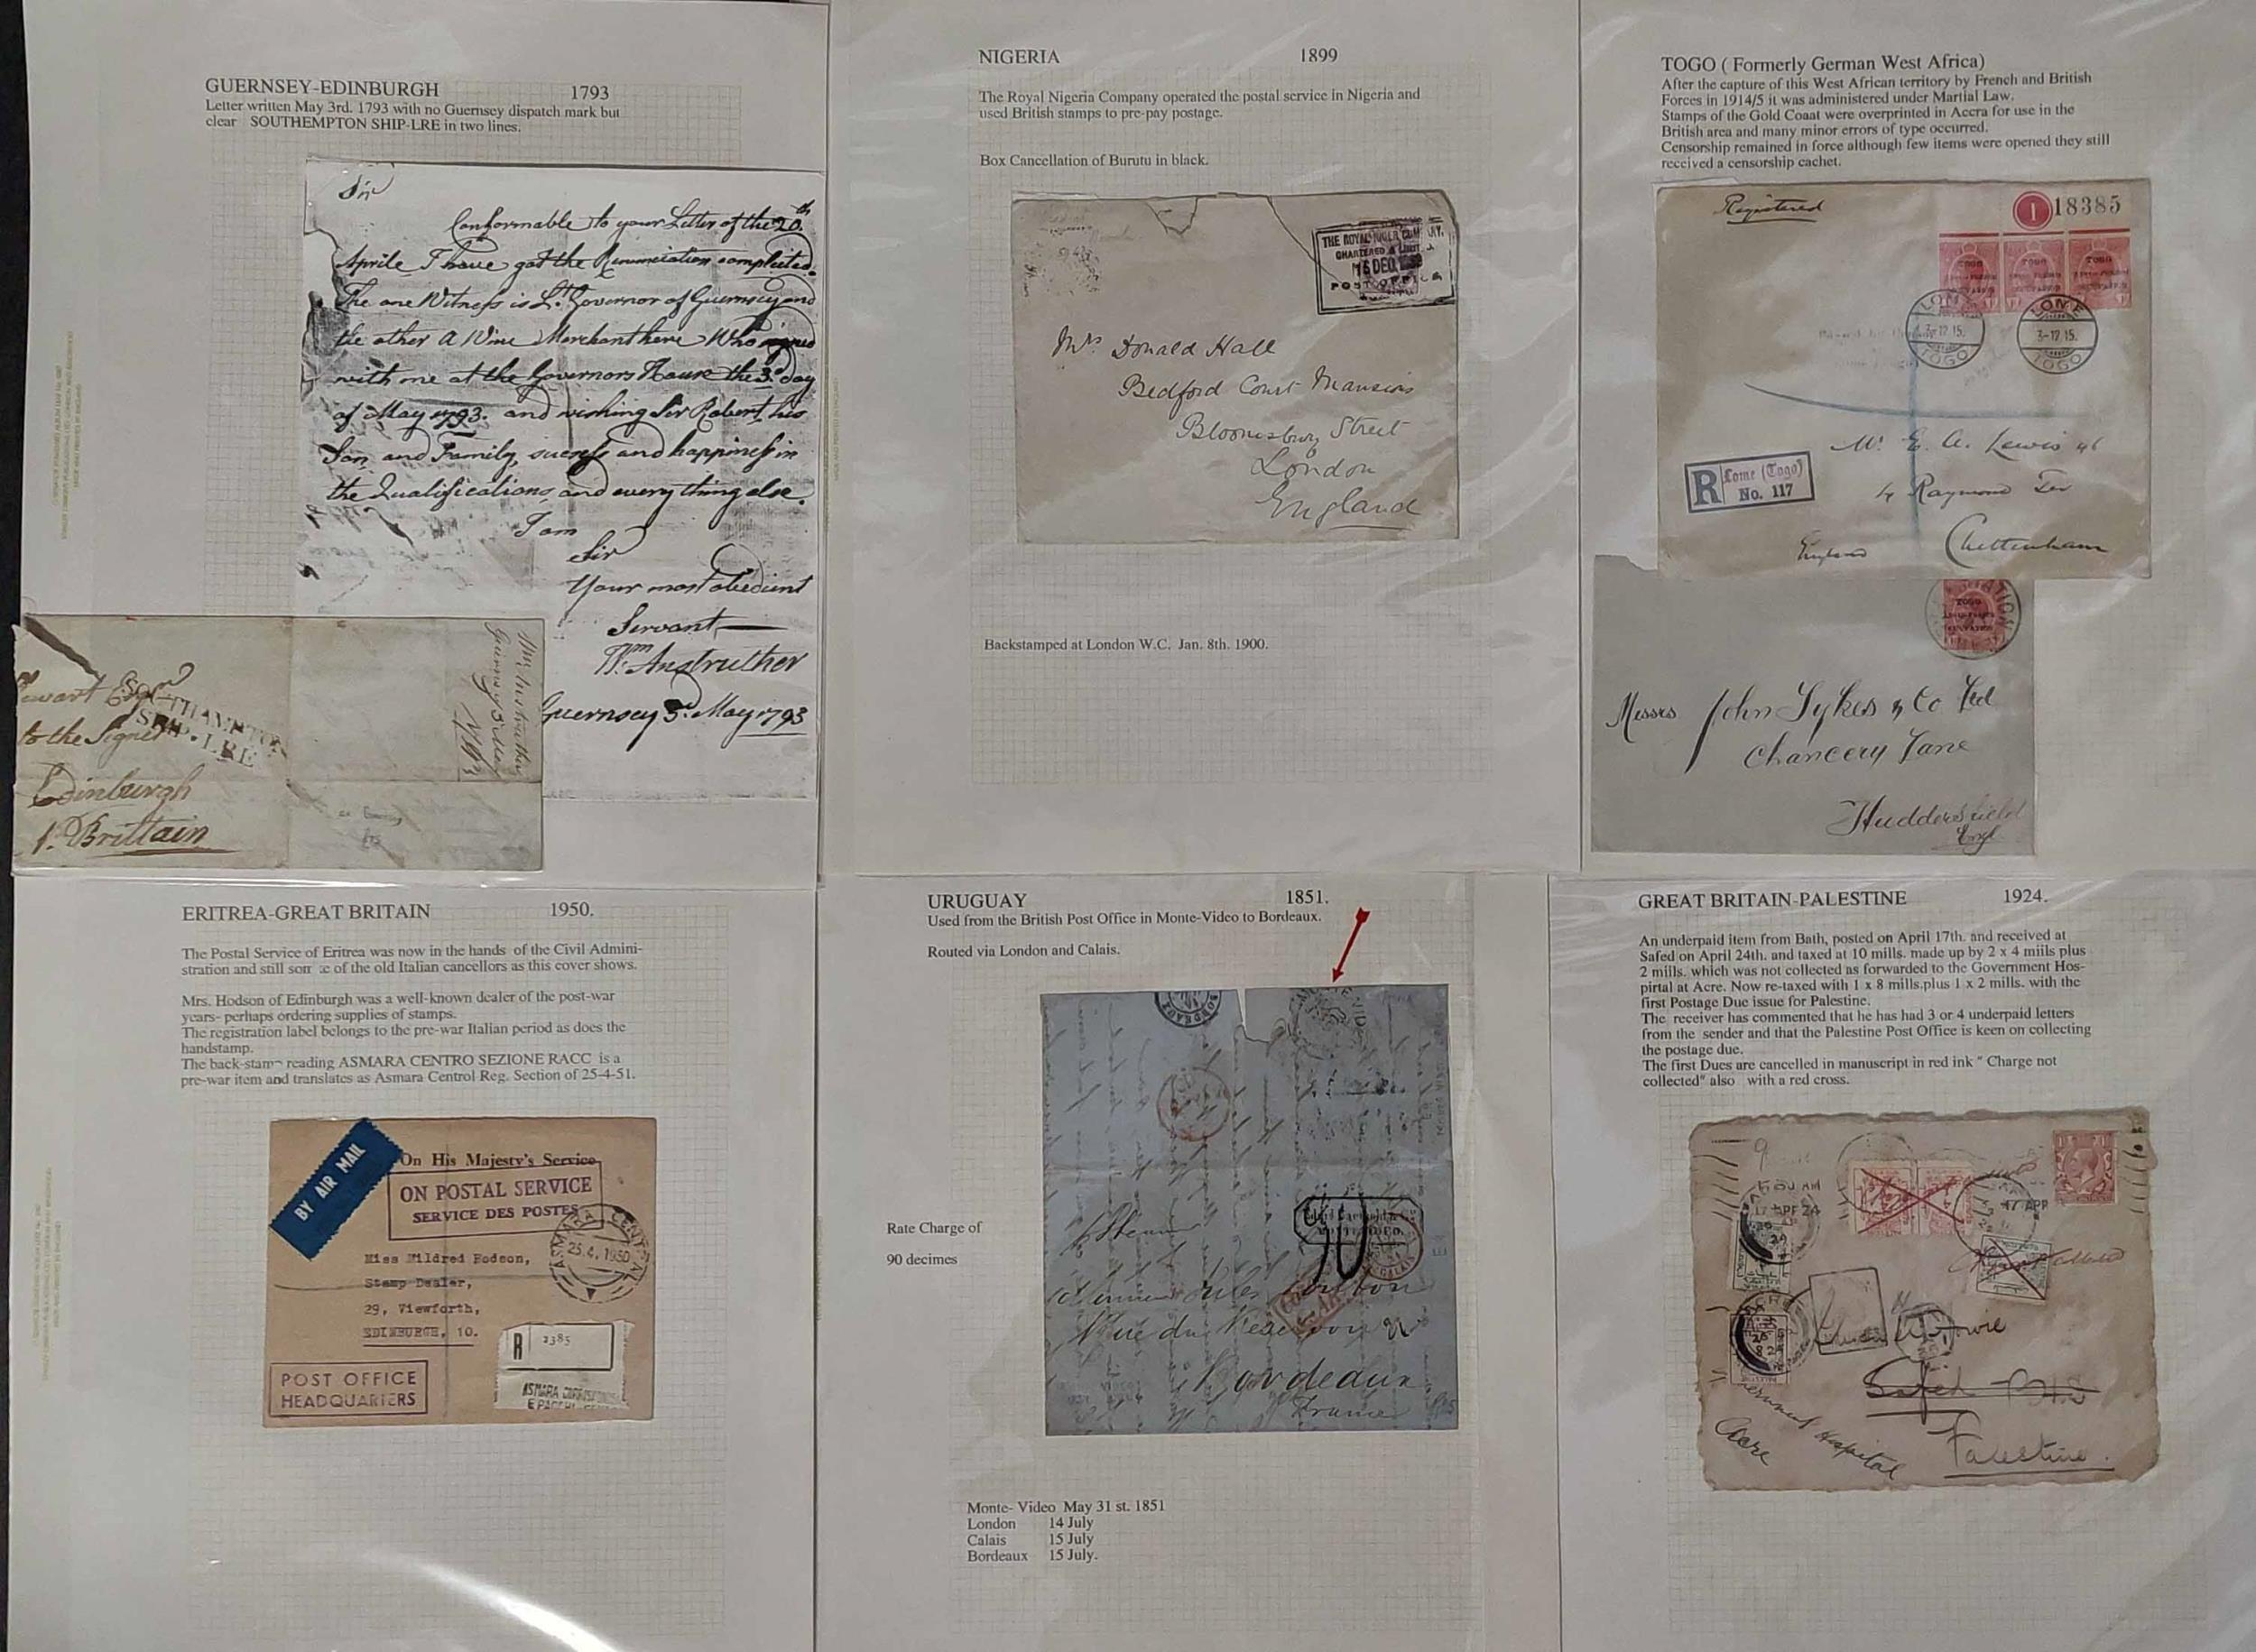 GUERNSEY-EDINBURGH 1793
Letter written May 3rd. 1793 with no Guernsey dispatch mark but
clear SOUTHEMPTON SHIP-LRE in two lines.
Sir
Conformable to your Letter of the 20th
Aprile I have got the Renunciation compleited.
The one Witness is Lt. Governor of Guernsey and
the other A Wine Merchant here Who signed
with me at the Governors House the 3d. day
of May 1793. and wishing Sir Robert, his
Son, and Family, success and happiness in
the Qualifications, and every thing else.
I am
Sir
Your most obedient
Servant
Wm. Anstruther
Guernsey 3d. May 1793
SOUTHAMPTON
SHIP-LRE
to the Signet
Edinburgh
Brittain
NIGERIA 1899
The Royal Nigeria Company operated the postal service in Nigeria and
used British stamps to pre-pay postage.
Box Cancellation of Burutu in black.
THE ROYAL NIGER COMPANY,
CHARTERED & LIMITED.
16 DEC 1899
POST OFFICE
Mrs. Donald Hall
Bedford Court Mansions
Bloomsbury Street
London
England
Backstamped at London W.C. Jan. 8th. 1900.
TOGO ( Formerly German West Africa)
After the capture of this West African territory by French and British
Forces in 1914/5 it was administered under Martial Law.
Stamps of the Gold Coaat were overprinted in Accra for use in the
British area and many minor errors of type occurred.
Censorship remained in force although few items were opened they still
received a censorship cachet.
Registered
1 18385
TOGO TOGO TOGO
LOME LOME
3-12.15. 3-12.15.
TOGO TOGO
Mr. E. A. Lewis
R Lome (Togo)
No. 117
Raymond Ter
England Cheltenham
TOGO
Messrs John Sykes & Co Ltd
Chancery Lane
Huddersfield
Engl.
ERITREA-GREAT BRITAIN 1950.
The Postal Service of Eritrea was now in the hands of the Civil Admini-
stration and still som of the old Italian cancellors as this cover shows.
Mrs. Hodson of Edinburgh was a well-known dealer of the post-war
years- perhaps ordering supplies of stamps.
The registration label belongs to the pre-war Italian period as does the
handstamp.
The back-stamp reading ASMARA CENTRO SEZIONE RACC is a
pre-war item and translates as Asmara Centrol Reg. Section of 25-4-51.
BY AIR MAIL
On His Majesty's Service
ON POSTAL SERVICE
SERVICE DES POSTES
ASMARA CENTRAL
25.4.1950
Miss Mildred Hodson,
Stamp Dealer,
29, Viewforth,
EDINBURGH, 10.
R 2385
ASMARA
POST OFFICE
HEADQUARTERS
URUGUAY 1851.
Used from the British Post Office in Monte-Video to Bordeaux.
Routed via London and Calais.
BORDEAUX
Rate Charge of
90 decimes
90
CALAIS
Bordeaux
France
Monte- Video May 31 st. 1851
London 14 July
Calais 15 July
Bordeaux 15 July.
GREAT BRITAIN-PALESTINE 1924.
An underpaid item from Bath, posted on April 17th. and received at
Safed on April 24th. and taxed at 10 mills. made up by 2 x 4 miils plus
2 miils. which was not collected as forwarded to the Government Hos-
pirtal at Acre. Now re-taxed with 1 x 8 mills.plus 1 x 2 mills. with the
first Postage Due issue for Palestine.
The receiver has commented that he has had 3 or 4 underpaid letters
from the sender and that the Palestine Post Office is keen on collecting
the postage due.
The first Dues are cancelled in manuscript in red ink " Charge not
collected" also with a red cross.
17 APR 24
17 APR
ACRE
Safed
Palestine.
Hospital
Acre